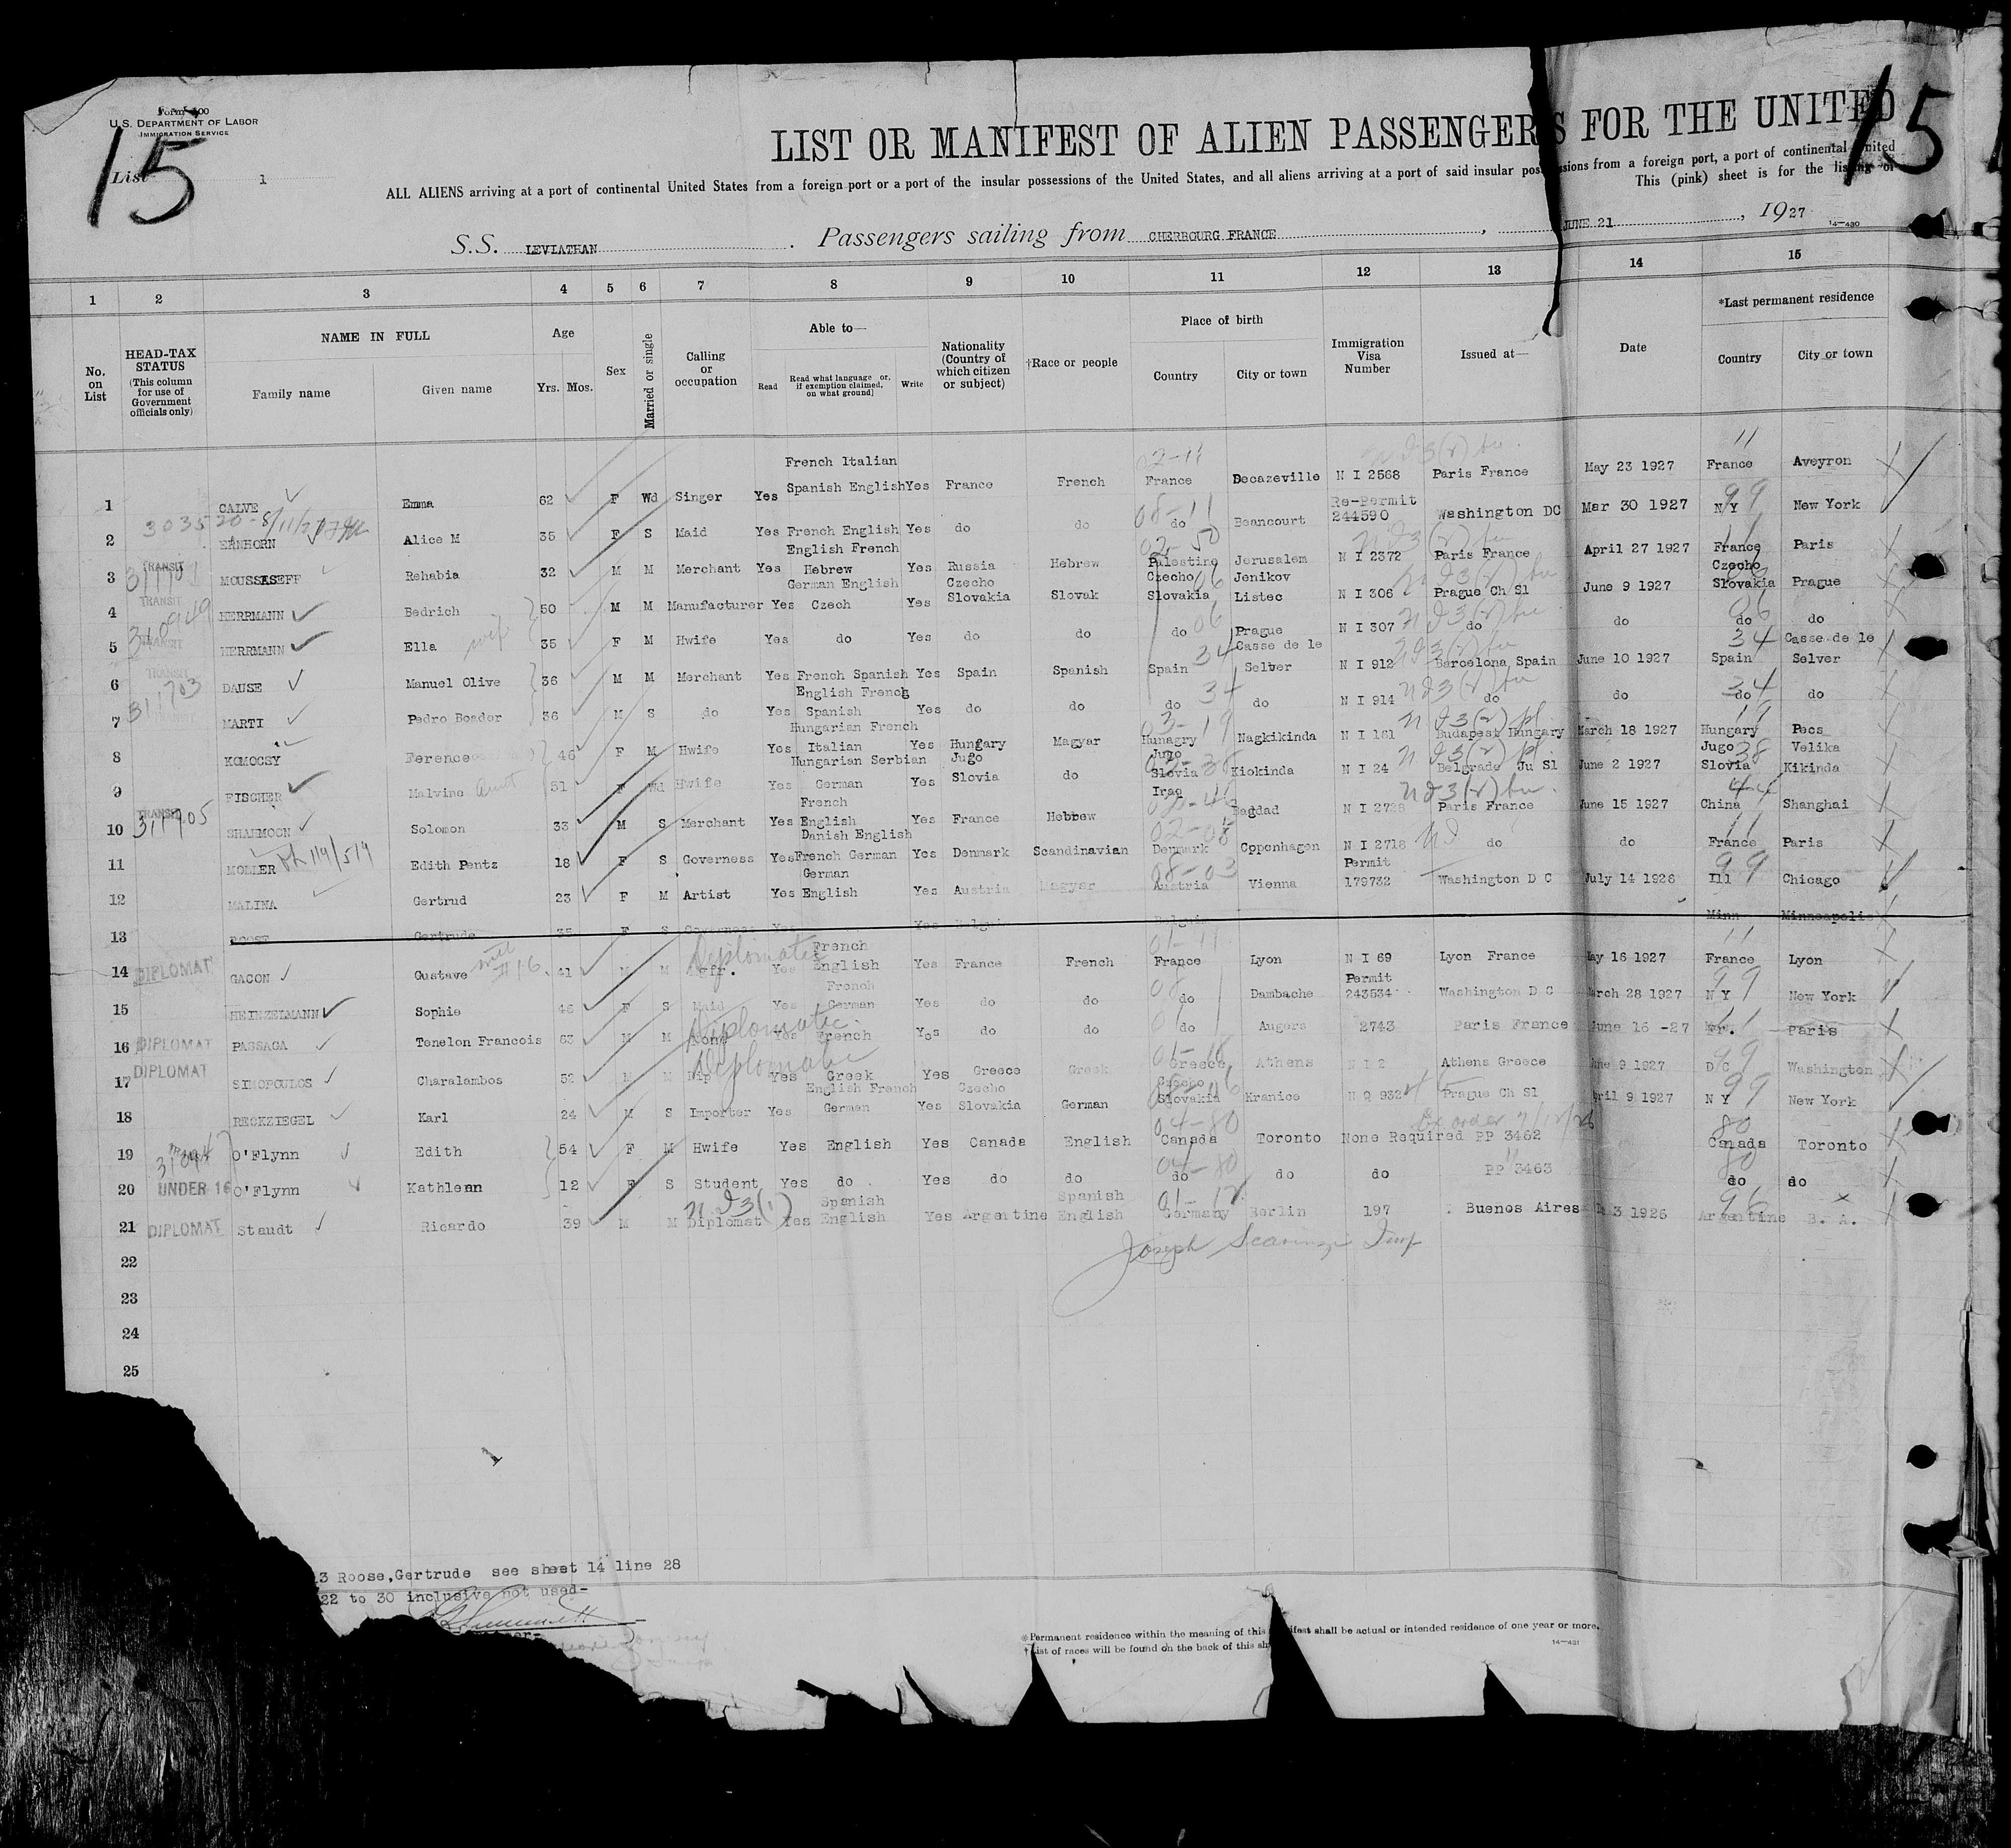 Form 500
U.S. DEPARTMENT OF LABOR
IMMIGRATION SERVICE
15
15
List 1
LIST OR MANIFEST OF ALIEN PASSENGERS FOR THE UNITED
ALL ALIENS arriving at a port of continental United States from a foreign port or a port of the insular possessions of the United States, and all aliens arriving at a port of said insular possessions from a foreign port, a port of continental United
This (pink) sheet is for the listing of
S.S. LEVIATHAN . Passengers sailing from CHERBOURG FRANCE , JUNE 21 , 1927
14—430
1 2 3 4 5 6 7 8 9 10 11 12 13 14 15
No. on List
HEAD-TAX STATUS (This column for use of Government officials only)
NAME IN FULL
Family name Given name
Age
Yrs. Mos.
Sex
Married or single
Calling or occupation
Able to—
Read Read what language [or, if exemption claimed, on what ground] Write
Nationality (Country of which citizen or subject)
†Race or people
Place of birth
Country City or town
Immigration Visa Number
Issued at—
Date
*Last permanent residence
Country City or town
1 CALVE Emma 62 F Wd Singer Yes French Italian Spanish English Yes France French France Decazeville N I 2568 Paris France May 23 1927 France Aveyron
2 ERNHORN Alice M 35 F S Maid Yes French English Yes do do do Beancourt Re-Permit 244590 Washington DC Mar 30 1927 N Y New York
3 TRANSIT MOUSSASEFF Rehabia 32 M M Merchant Yes English French Hebrew Yes Russia Hebrew Palestine Jerusalem N I 2372 Paris France April 27 1927 France Paris
4 TRANSIT HERRMANN Bedrich 50 M M Manufacturer Yes German English Czech Yes Czecho Slovakia Slovak Czecho Slovakia Jenikov Listec N I 306 Prague Ch Sl June 9 1927 Czecho Slovakia Prague
5 TRANSIT HERRMANN Ella wife 35 F M Hwife Yes do Yes do do do Prague N I 307 do do do do
6 TRANSIT DAUSE Manuel Olive 36 M M Merchant Yes French Spanish Yes Spain Spanish Spain Casse de le Selver N I 912 Barcelona Spain June 10 1927 Spain Casse de le Selver
7 MARTI Pedro Boador 36 M S do Yes English French Spanish Yes do do do do N I 914 do do do do
8 KOMOCSY Ference 46 F M Hwife Yes Hungarian French Italian Yes Hungary Magyar Hunagry Nagkikinda N I 161 Budapest Hungary March 18 1927 Hungary Pecs
9 FISCHER Malvine Aunt 51 F Wd Hwife Yes Hungarian Serbian German Yes Jugo Slovia do Jugo Slovia Kiokinda N I 24 Belgrade Ju Sl June 2 1927 Jugo Slovia Velika Kikinda
10 TRANSIT SHAHMOON Solomon 33 M S Merchant Yes French English Yes France Hebrew Iraq Bagdad N I 2728 Paris France June 15 1927 China Shanghai
11 MOLLER Edith Pentz 18 F S Governess Yes Danish English French German Yes Denmark Scandinavian Denmark Cppenhagen N I 2718 do do France Paris
12 MALINA Gertrud 23 F M Artist Yes German English Yes Austria Magyar Austria Vienna Permit 179732 Washington D C July 14 1926 Ill Chicago
13 ROOSE Gertrude 35 F S Governess Yes Yes Belgium Belgium Minn Minneapolis
14 DIPLOMAT GACON Gustave 41 M M Mgfr. Diplomatic Yes French English Yes France French France Lyon N I 69 Lyon France May 16 1927 France Lyon
15 HEINZELMANN Sophie 46 F S Maid Yes French German Yes do do do Dambache Permit 243534 Washington D C March 28 1927 N Y New York
16 DIPLOMAT PASSAGA Tenelon Francois 63 M M Diplomatic Yes French Yes do do do Angers 2743 Paris France June 16 -27 Fr. Paris
17 DIPLOMAT SIMOPOULOS Charalambos 52 M M Dip Diplomatic Yes Greek Yes Greece Greek Greece Athens N I 2 Athens Greece June 9 1927 D C Washington
18 RECKZIEGEL Karl 24 M S Importer Yes English French German Yes Czecho Slovakia German Czecho Slovakia Kranice N Q 932 Prague Ch Sl April 9 1927 N Y New York
19 O'Flynn Edith 54 F M Hwife Yes English Yes Canada English Canada Toronto None Required PP 3462 Canada Toronto
20 UNDER 16 O'Flynn Kathleen 12 F S Student Yes do Yes do do do do do PP 3463 do do
21 DIPLOMAT Staudt Ricardo 39 M M Diplomat Yes Spanish English Yes Argentine Spanish English Germany Berlin 197 Buenos Aires 3 1926 Argentine B. A.
Joseph
22
23
24
25
13 Roose,Gertrude see sheet 14 line 28
22 to 30 inclusive not used-
*Permanent residence within the meaning of this manifest shall be actual or intended residence of one year or more.
†List of races will be found on the back of this sh
14—431